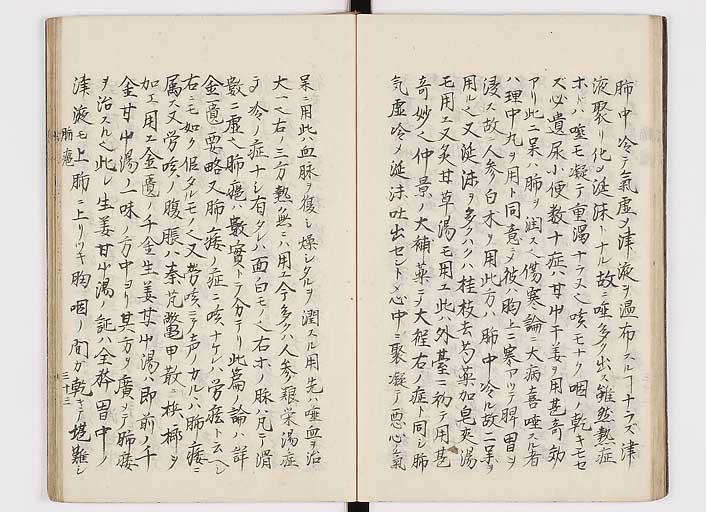 肺中冷テ氣虚メ津液ヲ温布スルヿナラズ津
液聚リ化メ涎沫トナル故ニ唾多ク出ス雖然熱症
ホドハ唾モ凝テ重濁ナラス又咳モナク咽乾キモセ
ズ必遺尿小便数十症ハ甘艸干姜ヲ用甚奇効
アリ此二呆ハ肺ヲ潤ス傷寒論ニ大病喜唾スル者
ハ理中丸ヲ用ト同意ニテ彼ハ胸上ニ寒アツテ脾胃ヲ
浸ス故人参白朮ヲ用此方ハ肺中冷ル故二呆ヲ
用ル又涎沫ヲ多クハクハ桂枝去芍薬加皂莢湯
モ用エ又炙甘草湯モ用エ此ハ外臺ニ初テ用甚
奇妙也仲景ノ大補薬ニテ大程右ノ症ト同シ肺
氣虚冷メ涎沫吐出セントメ心中ニ聚凝テ悪心氣
呆ニ用此ハ血脉ヲ復シ燥シタルヲ潤スル用先ハ唾血ヲ治
大一也右ノ三方熱無ニハ用エ今多クハ人参狼栄湯症
テ冷ノ症ナシ有タレハ面白モノ也右ホノ脉ハ凡ニテ滑
數ニ虚也肺癰ハ數實トテ分テリ此篇ノ論ハ詳
金匱要略又肺痿ノ症ニ咳ナケハ労症ト云ヘシ
右ニモ如ク但タルモノ也又労咳ニテ声ノカルハ肺痿ニ
属ス又労咳ノ腹脹ハ秦艽鼈甲散ニ梹榔ヲ
加エ用エ金匱ノ千金生姜甘艸湯ハ即前ノ千
金甘艸湯ノ一味ノ方中ヨリ其方ヲ廣メテ肺痿
ヲ治スル也此レ生姜甘艸湯ノ証ハ全體胃中ノ
津液モ上肺ニ上リツキ胸咽ノ間ガ乾キテ堪難シ
肺癰
三十三